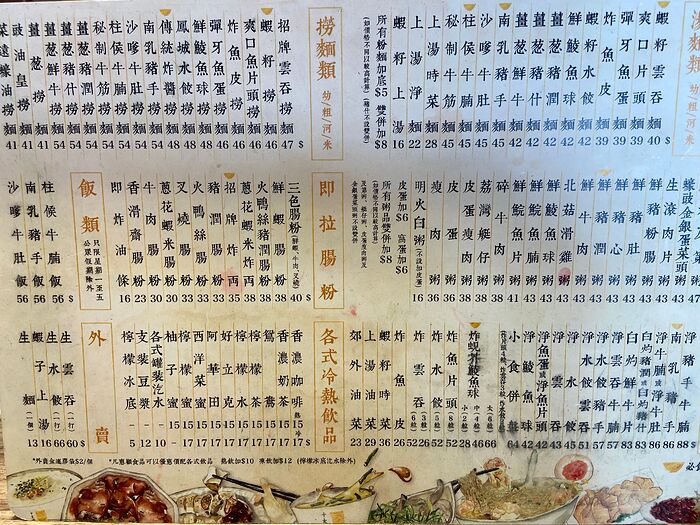 蝦籽雲吞麵 40 $
爽口魚片頭麵 39
彈牙魚蛋麵 39
炸魚皮麵 39
蝦籽水餃麵 42
鮮鯪魚球麵 42
薑葱豬潤麵 42
薑葱豬什麵 42
薑葱鮮牛麵 42
南乳豬手麵 45
沙嗲牛肚麵 45
柱侯牛腩麵 45
秘制牛筋麵 45
上湯時菜 28
上湯淨麵 22
蝦籽上湯 16
所有粉麵加底$5 雙併加$8
撈麵類 幼/粗/河米
招牌雲吞撈麵 47 $
爽口魚片頭撈麵 46
炸魚皮撈麵 46
彈牙魚蛋撈麵 46
鮮鯪魚球撈麵 46
鳳城水餃撈麵 48
傳統炸醬撈麵 48
南乳豬手撈麵 44
沙嗲牛肚撈麵 44
柱侯牛腩撈麵 44
秘制牛筋撈麵 44
薑葱豬什撈麵 44
薑葱鮮牛撈麵 44
薑葱撈麵 41
豉油皇撈麵 41
菜遠蠔油撈麵 41
蠔豉金銀蛋菜頭粥 47
生滾肉丸粥 43
鮮豬粉腸粥 43
鮮豬肚粥 43
鮮豬心粥 43
鮮豬潤粥 43
北菇滑雞粥 43
鮮鯪魚球粥 43
鮮鯇魚腩粥 43
鮮鯇魚片粥 41
碎牛肉粥 38
荔灣艇仔粥 38
皮蛋瘦肉粥
瘦肉粥 36
明火白粥 (不設加皮蛋) 16
皮蛋加$6 窩蛋加$6
所有粥品雙併加$8
即拉腸粉
三色腸粉 (鮮蝦、牛肉、叉燒) 40 $
鮮蝦腸粉 38
火鴨絲豬潤腸粉 38
葱花蝦米炸兩 38
招牌炸兩 35
豬潤腸粉
火鴨絲腸粉 33
叉燒腸粉 33
葱花蝦米腸粉 30
牛肉腸粉 30
香滑齋腸粉 23
即炸油條 16
飯類
只限星期一至五
公眾假期除外
柱侯牛腩飯 56 $
南乳豬手飯 56
沙嗲牛肚飯 56
南乳豬手 88
淨牛腩或淨牛肚 86
白灼豬潤或白灼豬什 83
白灼鮮牛肉 83
淨雲吞牛腩 57
淨水餃牛腩
淨雲吞豬手
淨水餃 45
淨雲吞 43
淨魚蛋或淨魚片頭 42
小食併盤 64
炸蜆芥鯪魚球 大(6粒) 66 中(4粒) 46 小(2粒) 28
炸魚片頭 52
炸雲吞 (8粒) 52
炸魚皮 26
蝦籽時菜 36
上湯油菜 29
郊外油菜 23
各式冷熱飲品
香濃咖啡 熱15 冷17
香濃奶茶 15 17
鴛鴦 15 17
檸檬茶 15 17
檸檬水 15 17
好立克 15 17
阿華田 15 17
西洋菜蜜 15 17
檸檬蜜 15 17
柚子蜜 15 17
各式罐裝汽水 - 10
支裝豆漿 - 12
檸檬冰底 - 5
外賣
生雲吞 60 $
生水餃 66
蝦子上湯 16
生麵 (一個) 13
*外賣盒連膠袋$2/個
*凡惠顧食品可以優惠價配各式飲品 熱飲加$10 凍飲加$12 (檸檬冰底汽水除外)